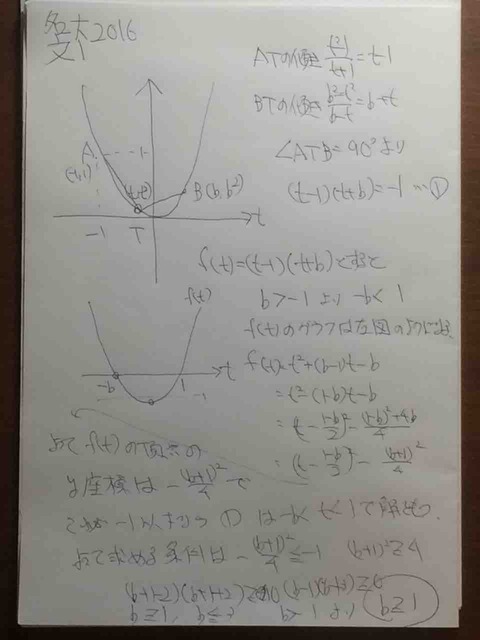 名大2016
文1
ATの傾き (t²-1)/(t+1) = t-1
BTの傾き (b²-t²)/(b-t) = b+t
∠ATB=90°より
(t-1)(t+b)=-1 …①
A
(-1,1)
1
(t,t²)
B(b,b²)
-1
T
t
f(t)=(t-1)(t+b)とすると
b>-1より -b<1
f(t)のグラフは左図のようになる
f(t)
-b
1
t
-1
f(t)=t²+(b-1)t-b
=t²-(1-b)t-b
=(t-(1-b)/2)²-((1-b)²+4b)/4
=(t-(1-b)/2)²-(b+1)²/4
よってf(t)の頂点の
y座標は -(b+1)²/4 で
これが-1以下なら①は-b<t<1で解をもつ
よって求める条件は -(b+1)²/4≦-1 (b+1)²≧4
(b+1-2)(b+1+2)≧0 (b-1)(b+3)≧0
b≧1, b≦
b>-1より b≧1